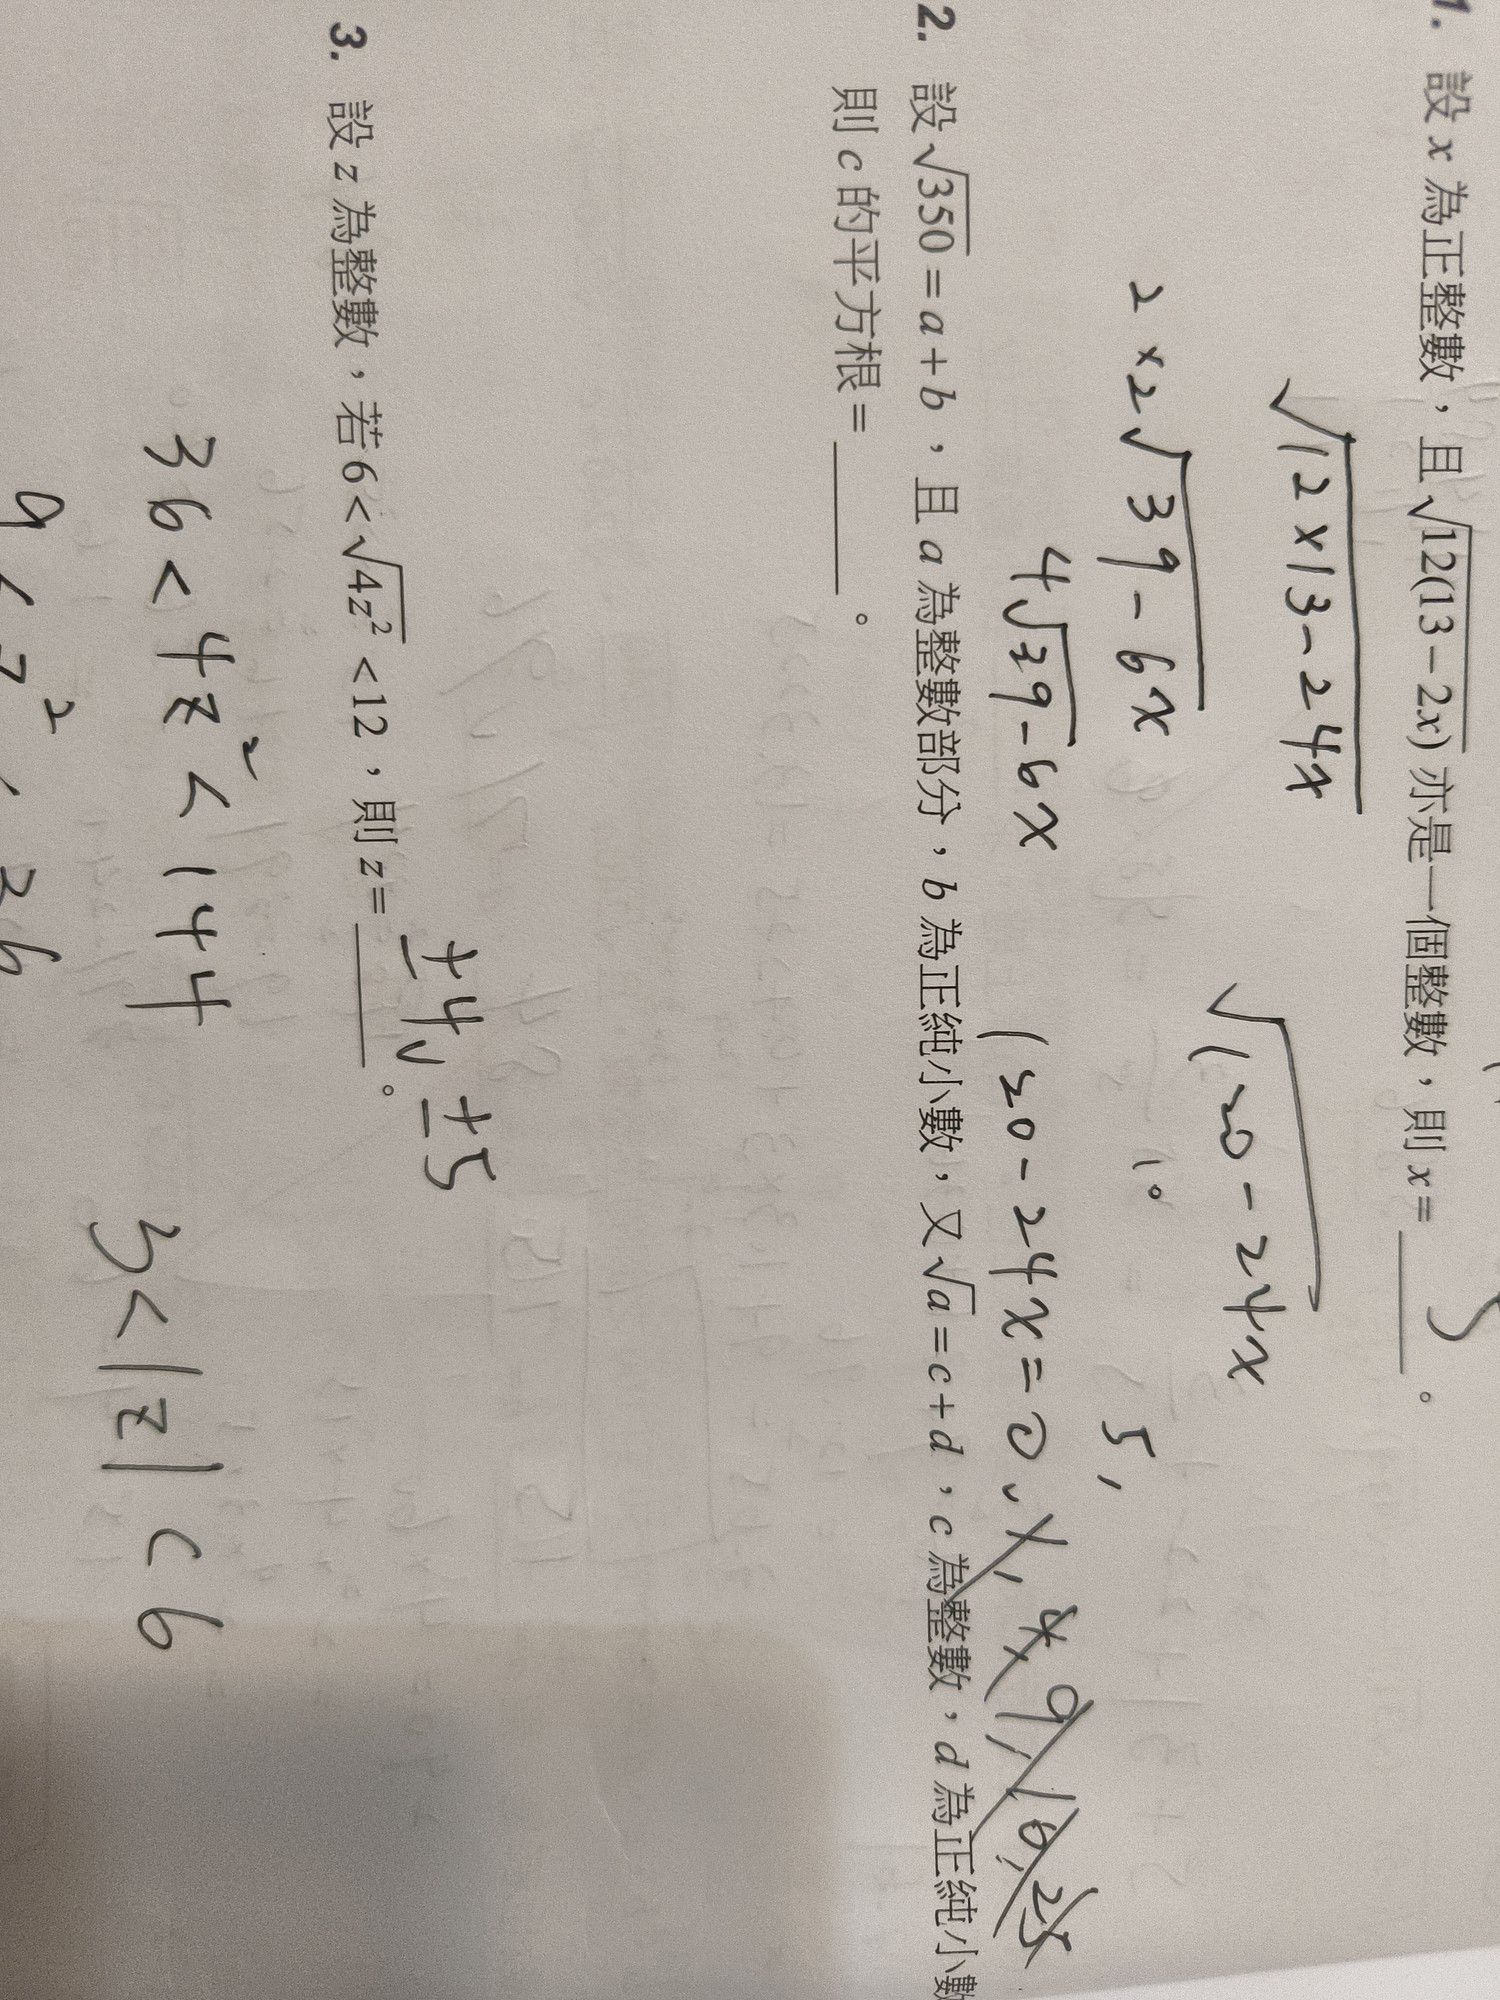 1. 設 x 為正整數，且√12(13－2x) 亦是一個整數，則 x＝____。
√12×13－24x
√130－24x
2×2√39－6x
10
5,
4√39－6x
130－24x＝0, 1, 4, 9, 16, 25
2. 設√350＝a＋b，且 a 為整數部分，b 為正純小數，又√a＝c＋d，c 為整數，d 為正純小數
則 c 的平方根＝____。
±4, ±5
3. 設 z 為整數，若 6＜√4z²＜12，則 z＝____。
36＜4z²＜144
3＜|z|＜6
9＜z²＜36